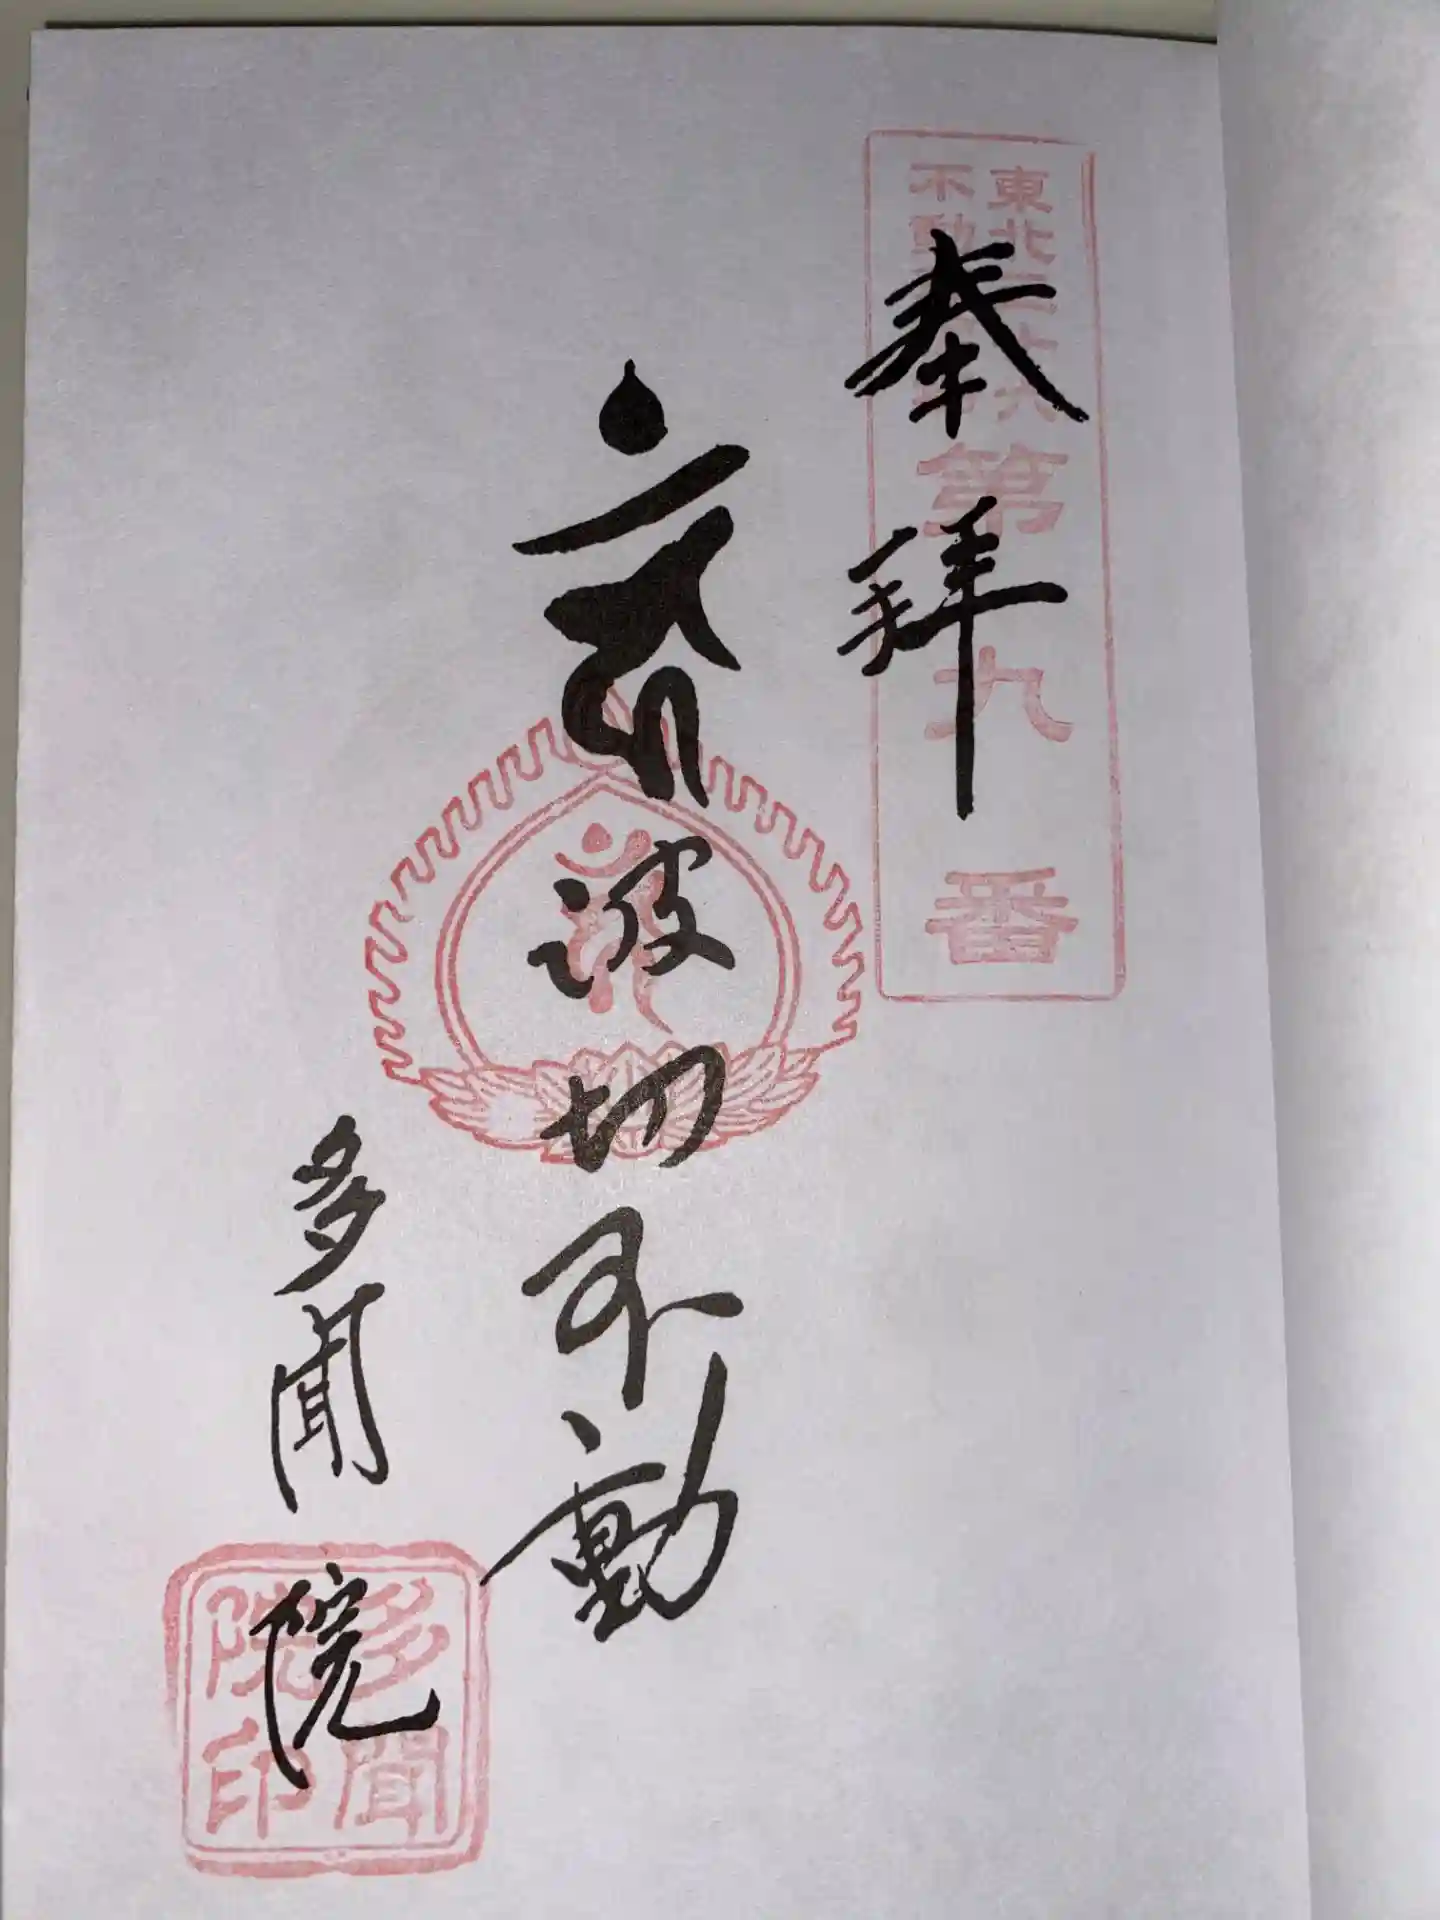 東北三十六
不動尊霊場
第九番
奉拝
波切不動
多聞院
多聞
院印